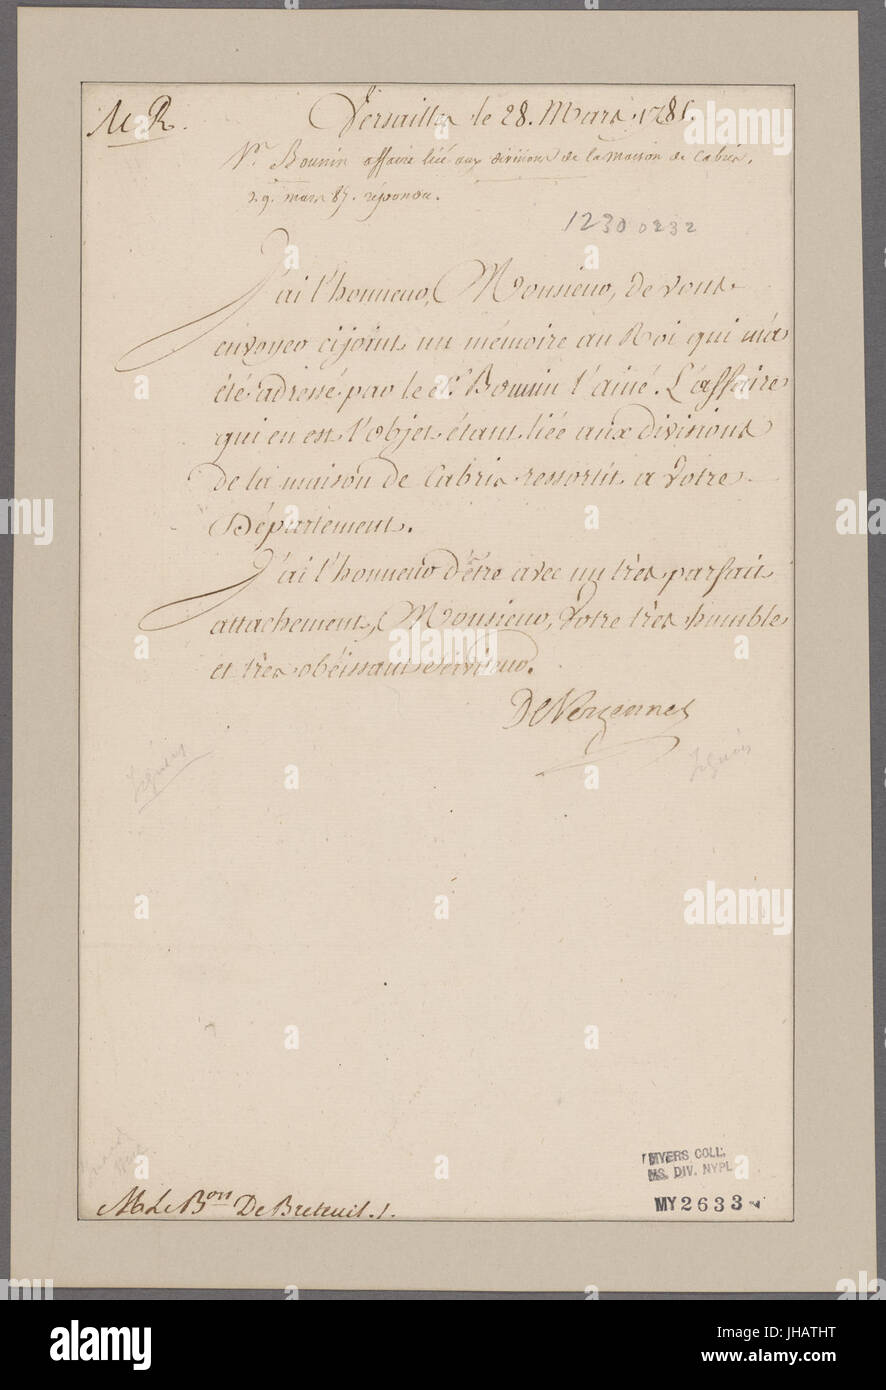 M R.
Versailles le 28. Mars 1785.
Sr. Bounin affaire liée aux divisions de la maison de Cabris.
29. mars 85. répondu.
1230 0232
J'ai l'honneur, Monsieur, de vous
envoyer cijoint un mémoire au Roi qui m'a
été adressé par le Sr. Bounin l'ainé. L'affaire
qui en est l'objet étant liée aux divisions
de la maison de Cabris ressortit a votre
Département.
J'ai l'honneur d'être avec un très parfait
attachement, Monsieur, votre très humble
et très obéissant serviteur.
De Vergennes
M. Le Bon De Breteuil ./.
MYERS COLL.
MS. DIV. NYPL
MY 2633
alamy stock photo
alamy
Image ID: JHATHT
www.alamy.com